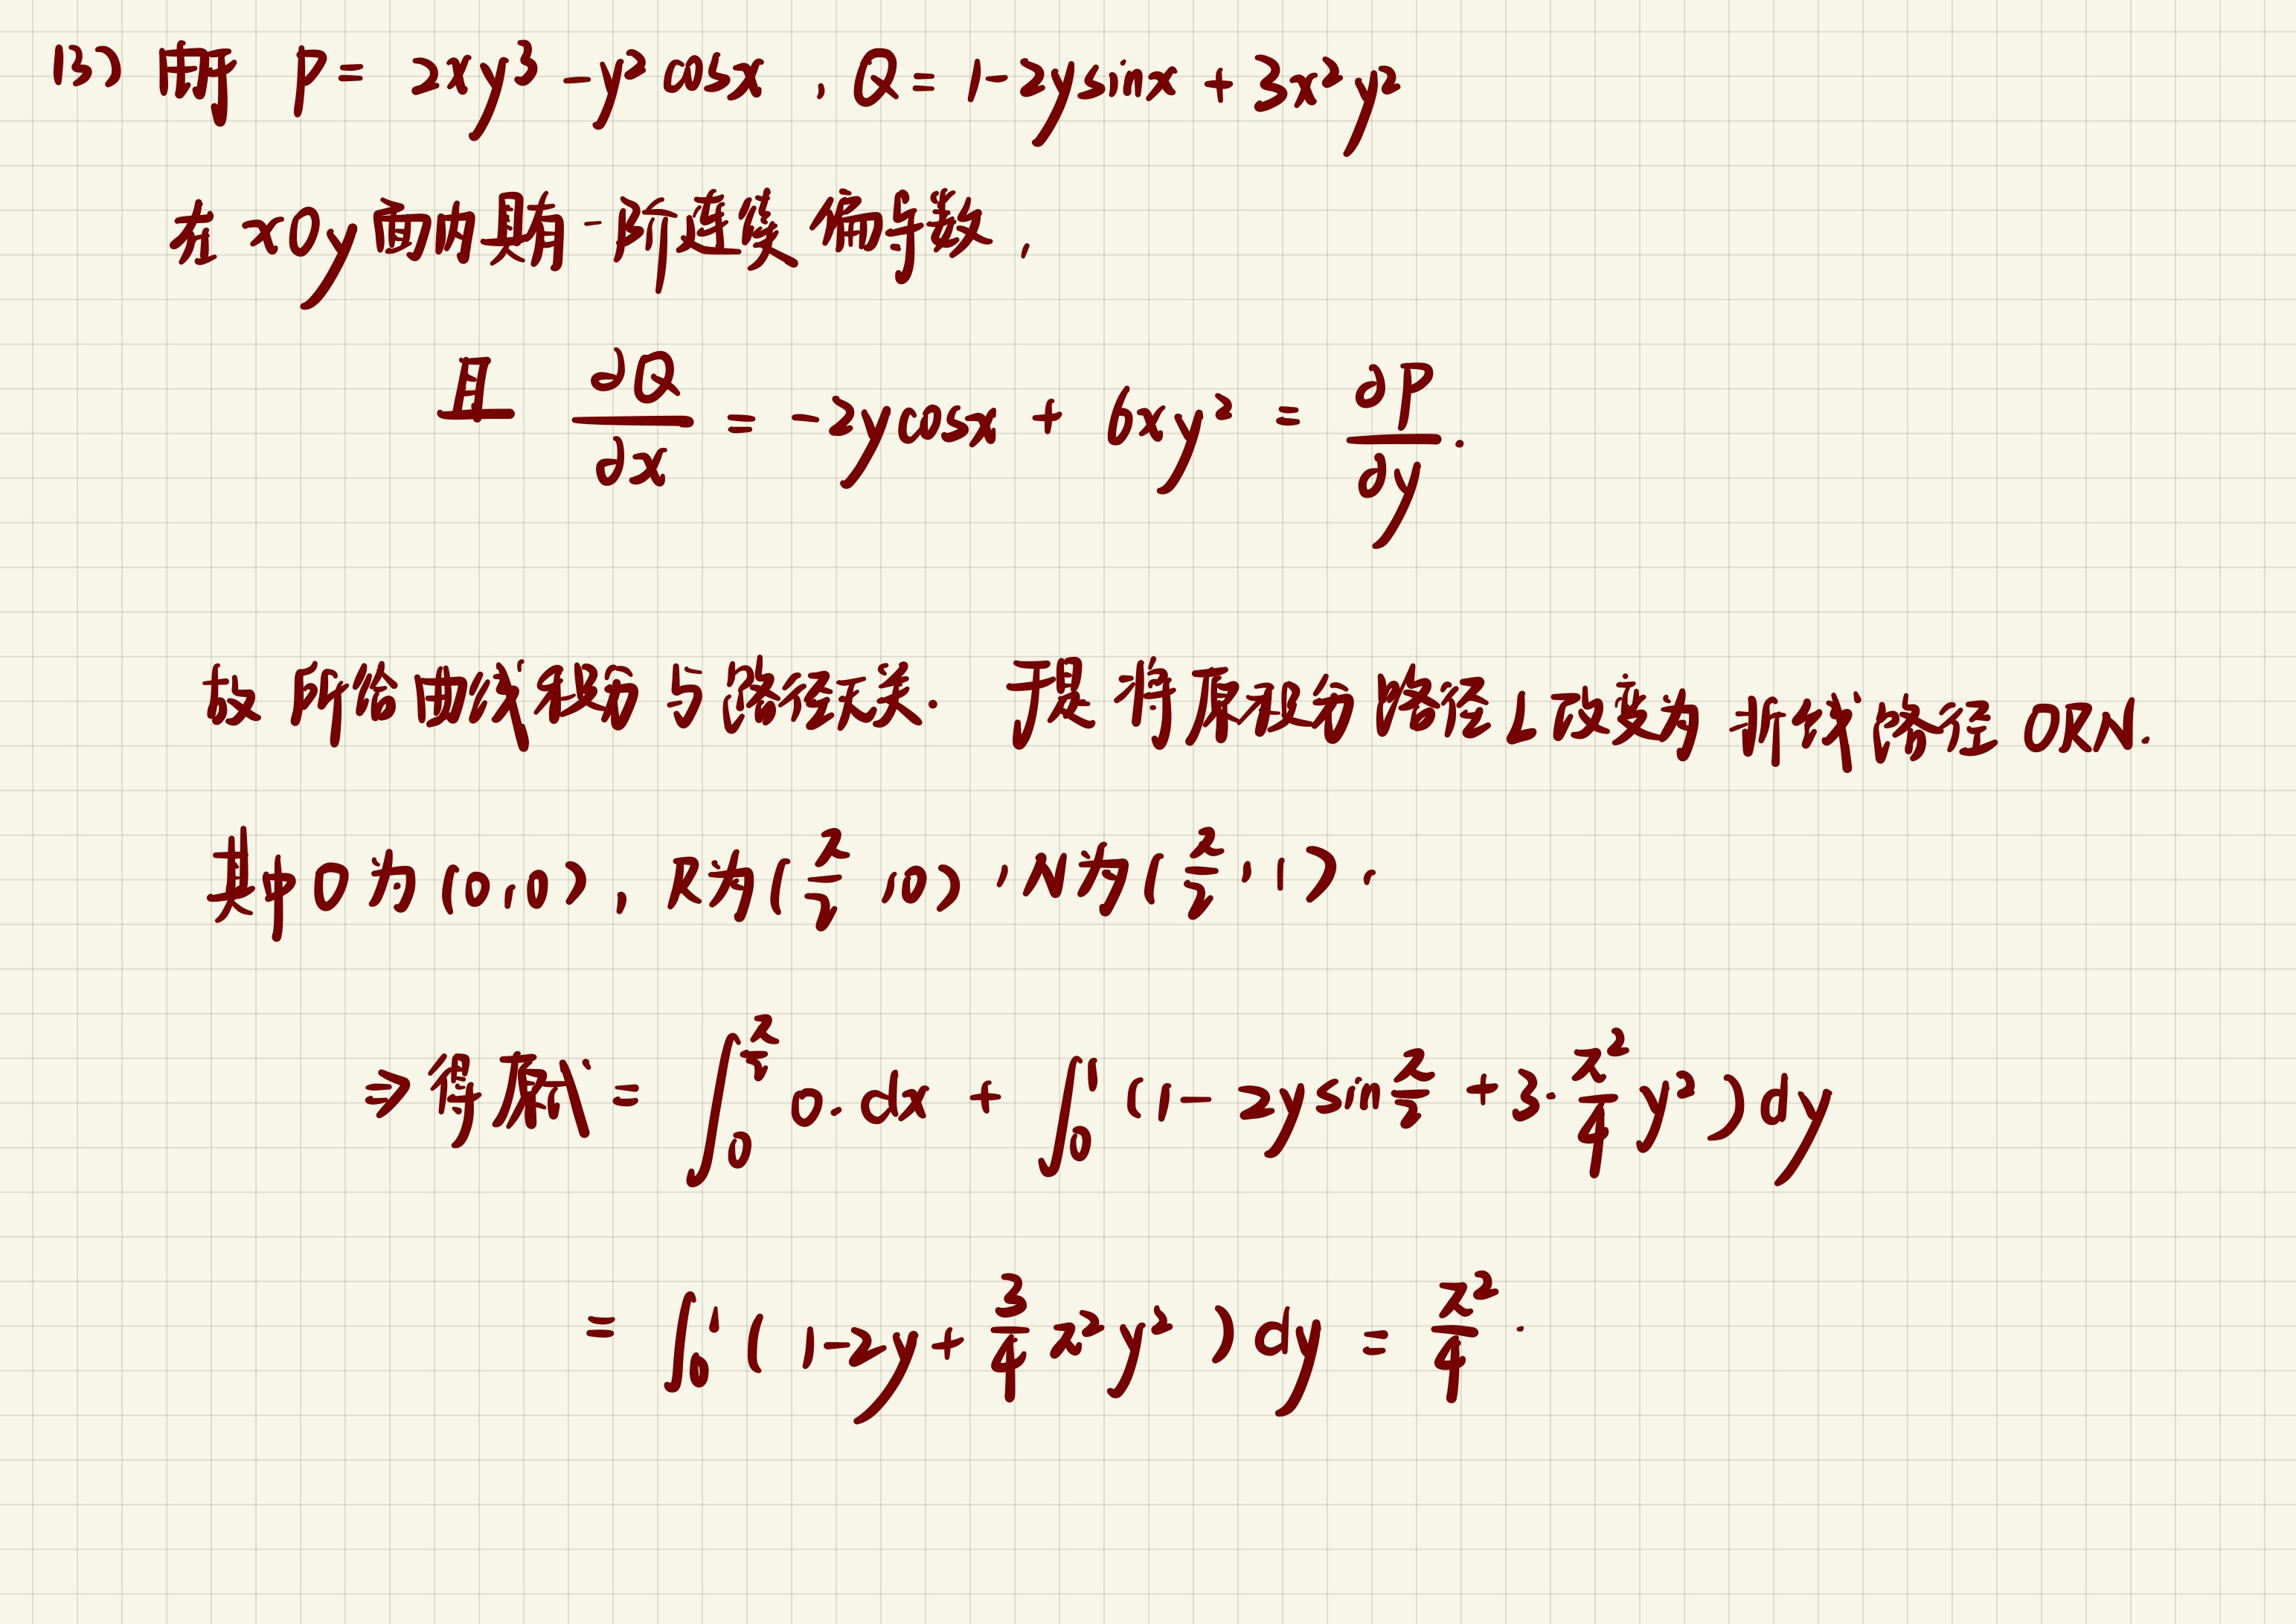 (3) 解 P = 2xy³ - y² cosx , Q = 1 - 2y sinx + 3x²y²
在 xOy 面内具有一阶连续偏导数,
且 ∂Q/∂x = -2y cosx + 6xy² = ∂P/∂y.
故所给曲线积分与路径无关. 于是将原积分路径L改变为折线路径 ORN.
其中O为(0,0), R为(π/2,0), N为(π/2,1).
⇒ 得原式 = ∫₀^(π/2) 0·dx + ∫₀¹ (1 - 2y sin π/2 + 3·π²/4 y²) dy
= ∫₀¹ (1 - 2y + 3/4 π² y²) dy = π²/4.